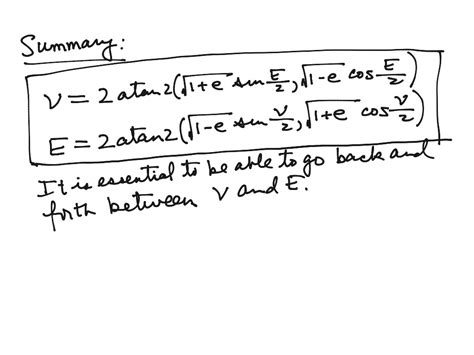 Summary:
ν = 2 atan2(√1+e sin E/2, √1-e cos E/2)
E = 2 atan2(√1-e sin ν/2, √1+e cos ν/2)
It is essential to be able to go back and
forth between ν and E.